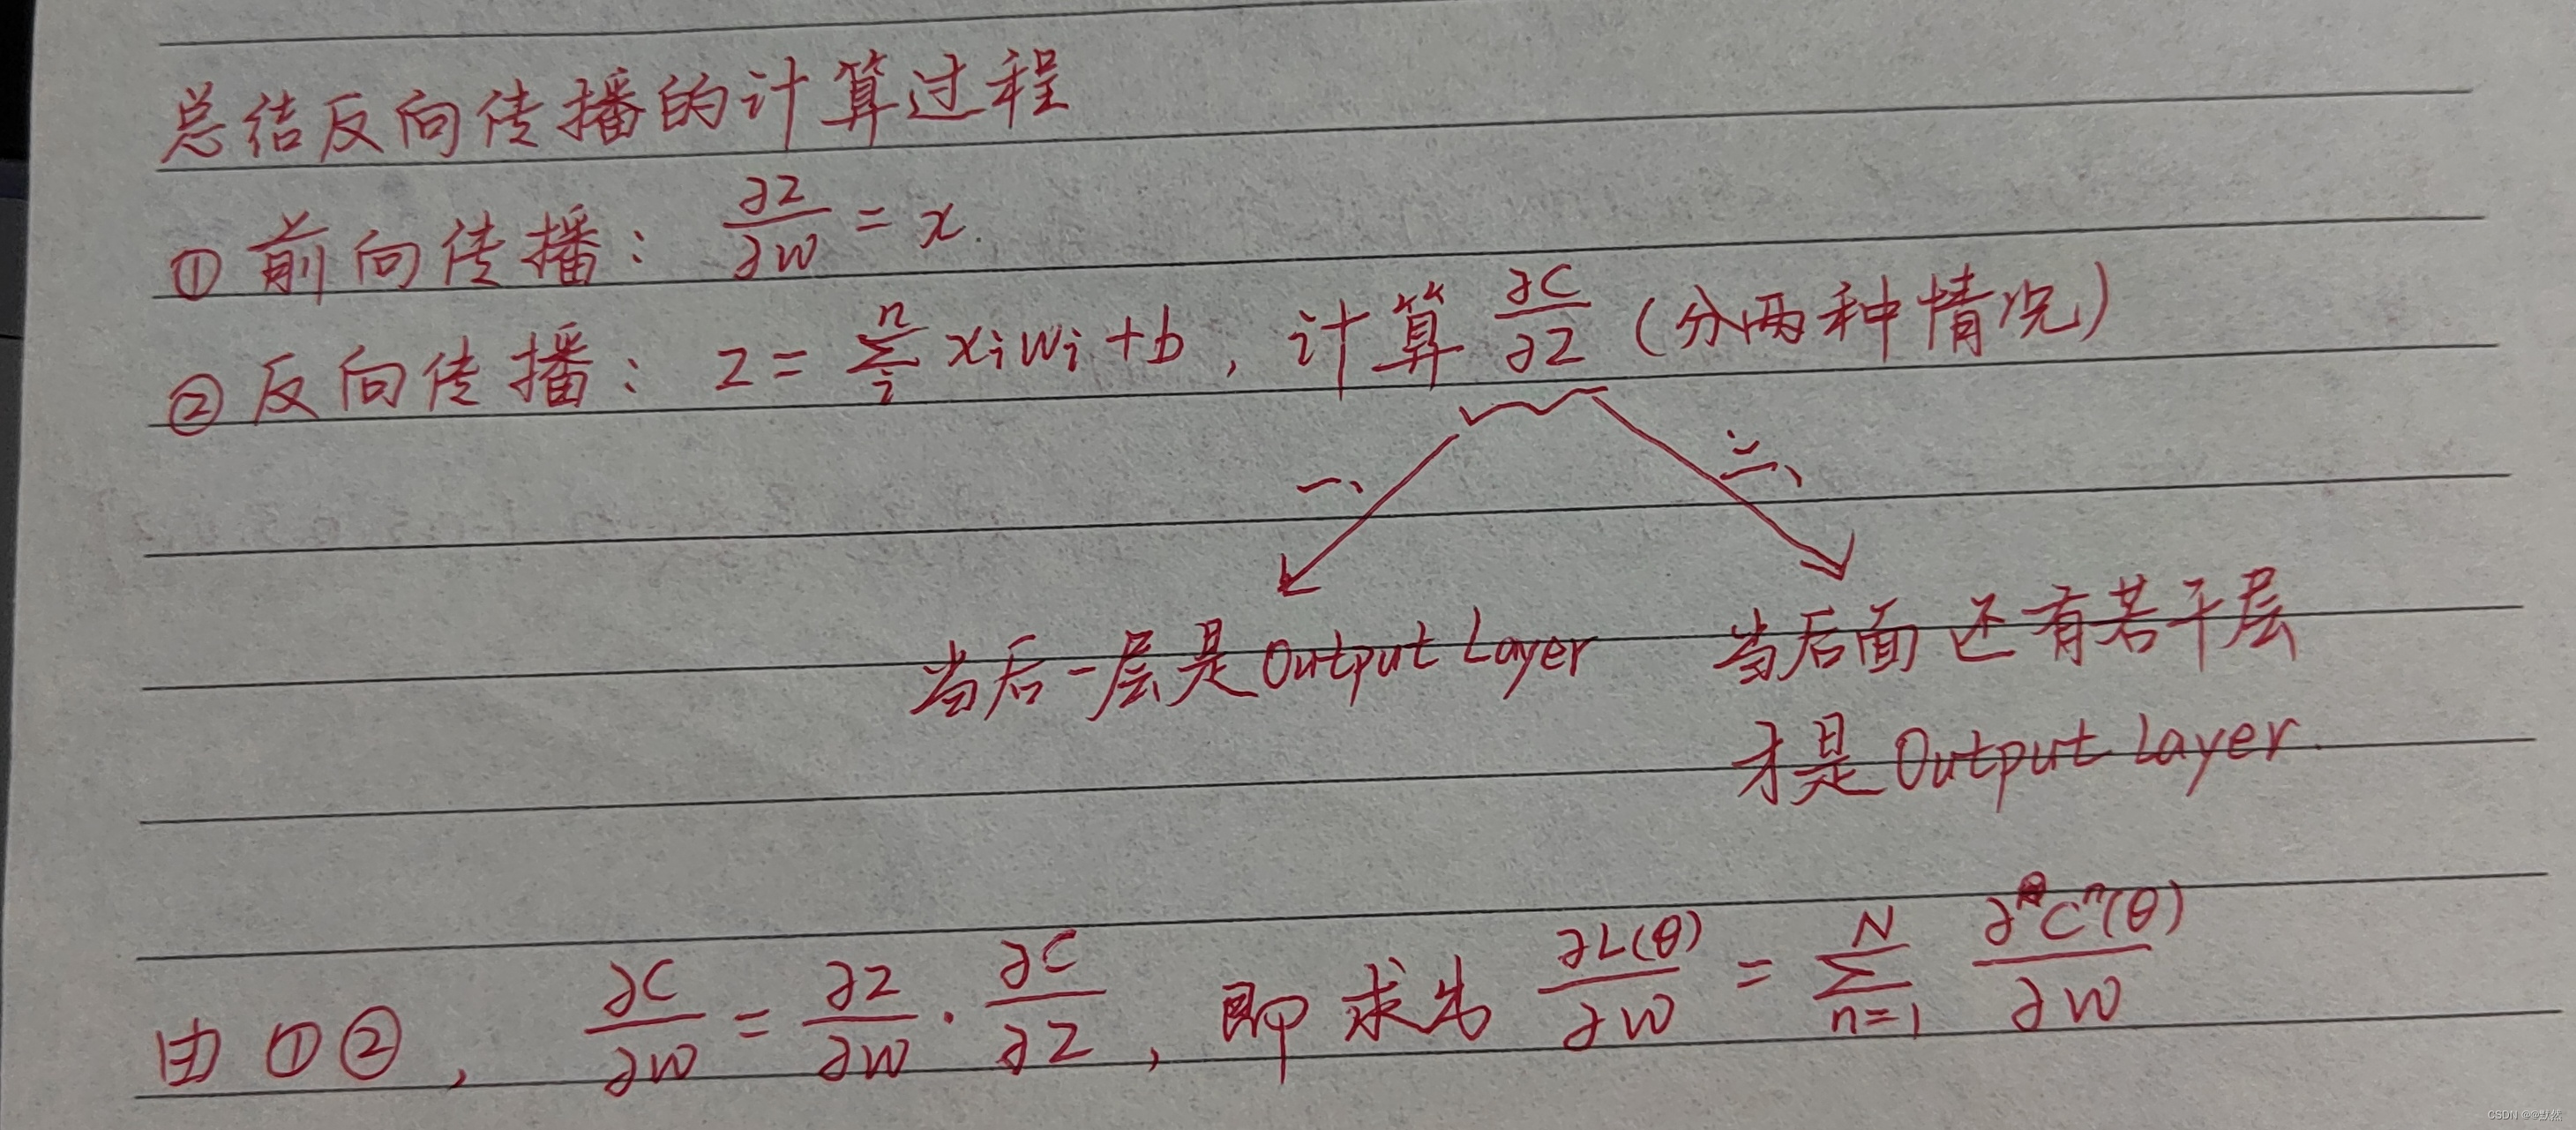 总结反向传播的计算过程
① 前向传播： ∂z/∂w = x.
② 反向传播： z = Σ_i^n x_i w_i + b , 计算 ∂C/∂z (分两种情况)
一、 二、
当后一层是 Output Layer
当后面还有若干层
才是 Output Layer.
由 ①② , ∂C/∂w = ∂z/∂w · ∂C/∂z , 即求出 ∂L(θ)/∂w = Σ_{n=1}^N ∂C^n(θ)/∂w
CSDN @@默然